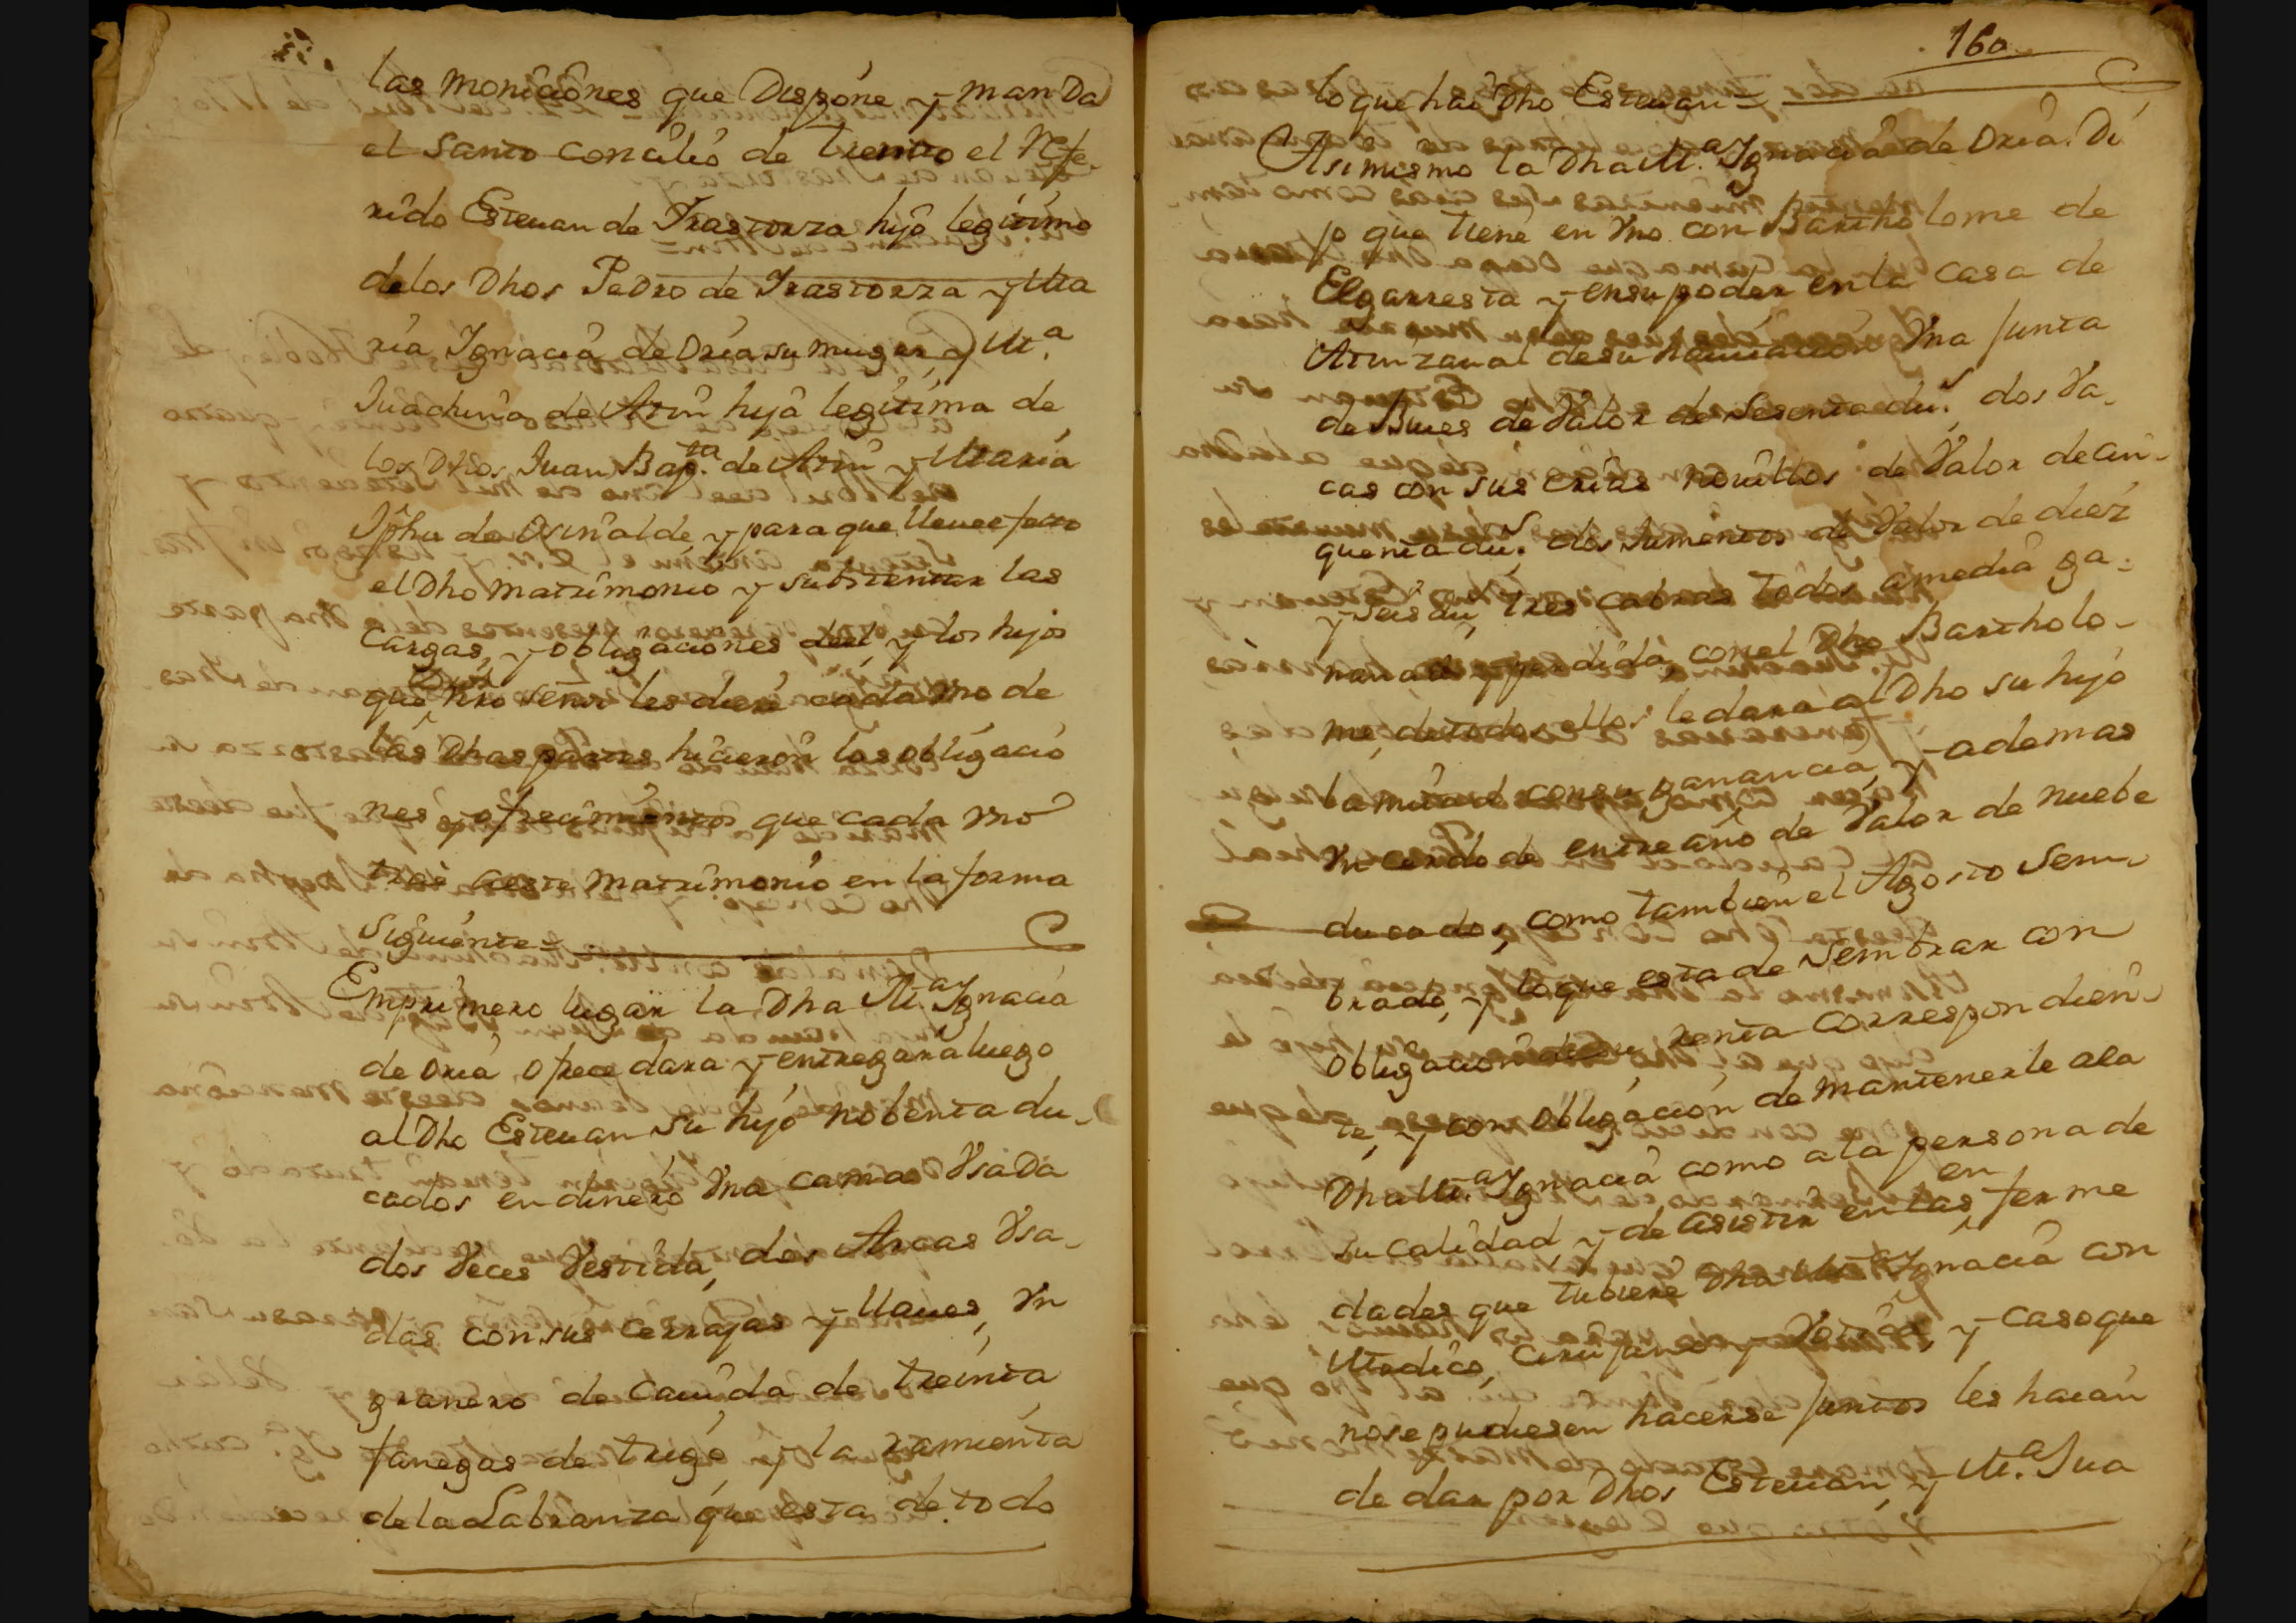 las moniciones que Dispone y manda
el Santo concilio de trento el Refe-
rido Esteuan de Irastorza hijo legitimo
delos Dhos Pedro de Irastorza y Ma
ria Ignacia de Oria su muger, y M.ª
Juachina de Atun hija legitima de
los Dhos Juan Bap.ta de Atun y Maria
Jpha de Osinalde, y para que lleue efecto
el Dho matrimonio y subtentar las
cargas, y obligaciones del, y los hijos
que Dios nro señor les diere cada vno de
las Dhas partes hicieron las obligacio
nes y ofrecimientos que cada vno
trae a este matrimonio en la forma
Siguiente=
Emprimero lugar la Dha M.ª Ignacia
de Oria, ofrece dara y entregara luego
al Dho Esteuan su hijo nobenta du-
cados en dinero Vna cama Vsada
dos Veces Vestida, dos Arcas Vsa-
das con sus cerrajas y llaues, Vn
granero de cauida de treinta
fanegas de trigo, y la ramienta
dela Labranza que esta de todo
160
lo que hace Dho Esteuan =
Asimismo la Dha M.ª Ignacia de Oria. Di
jo que tiene en Vno con Bartholome de
Elgarresta y en su poder en la casa de
Atunzaual de su hauitacion Vna Junta
de Bues de Valor de Sesenta du.s, dos Va-
cas con sus crias nouillos de Valor de cin-
quenta du.s, dos Jumentos de Valor de diez
y seis du.s, tres cabras todos a media ga-
nancia y perdida, con el Dho Bartholo-
me, de todos ellos le dara al Dho su hijo
la mitad con su ganancia, y ademas
Vn cerdo de entreaño de Valor de nuebe
ducados, como tambien el Agosto Sem-
brado, y lo que esta de Sembrar con
obligacion de su renta correspondien-
te, y con obligacion de mantenerle ala
Dha M.ª Ignacia como ala persona de
su calidad, y de asistir en las en ferme
dades que tubiere Dha M.ª Ignacia con
Medico, cirujano y Botica, y caso que
no se pudiesen hacerse Juntos les haian
de dar por Dhos Esteuan, y M.ª Jua